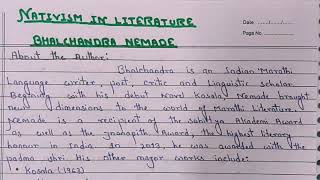 NATIVISM IN LITERATURE
BHALCHANDRA NEMADE
Date ....../....../......
Page No.
About the Author:
Bhalchandra is an Indian Marathi
Language writer, poet, critic and Linguistic scholar
Begining with his debut Novel Kosala Nemade brought
new dimensions to the world of Marathi Literature
Nemade is a recipient of the sahitya Akademi Award
as well as the Jnanapith Award, the highest literary
honour in India. In 2013, he was awarded with the
padma shri His other major works include:
• Kosala (1963)